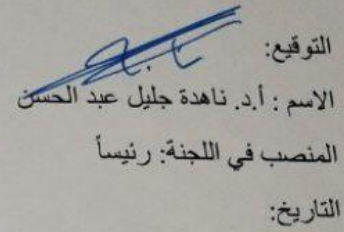 التوقيع:
الاسم : أ.د. ناهدة جليل عبد الحسن
المنصب في اللجنة: رئيساً
التاريخ: